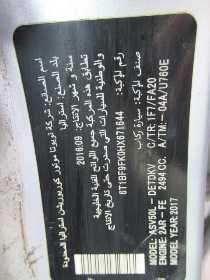 اسم الصانع: شركة تويوتا موتور كوربوريشن استراليا المحدودة
بلد الصنع: استراليا
سنة و شهر الانتاج: 2016/09
تطابق هذه المركبة جميع اللوائح الفنية الخليجية
والوطنية للسيارات التي سرت حتى تاريخ الانتاج
رقم المركبة: 6T1BF9FK0HX671644
صنف المركبة: سيارة ركاب
MODEL: ASV50L-DETDKV C/TR: 1F7/FA20
ENGINE: 2AR-FE 2494CC. A/TM: -04A/U760E
MODEL YEAR: 2017